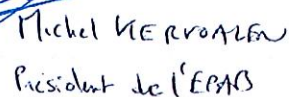 Michel KERVOALEN
Président de l'EPAB